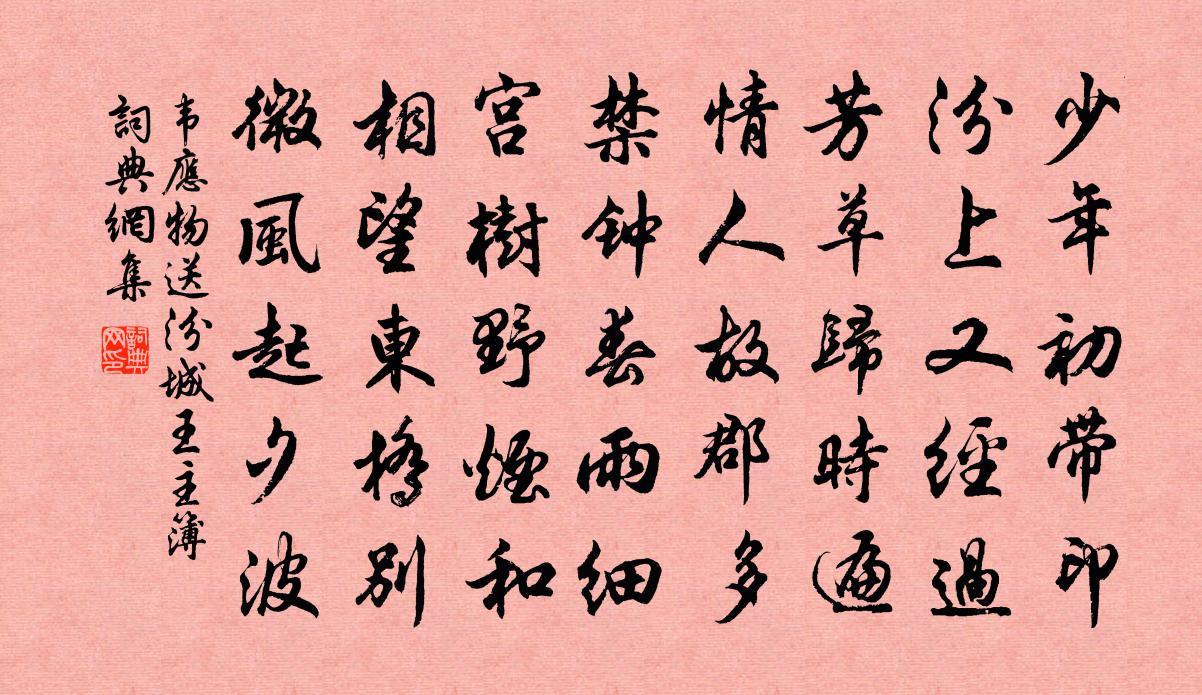 少年初带印
汾上又經過
芳草歸時遍
情人故郡多
禁钟春雨細
宫樹野煙和
相望東橋别
微風起夕波
韦應物送汾城王主簿
詞典網集
詞典网印